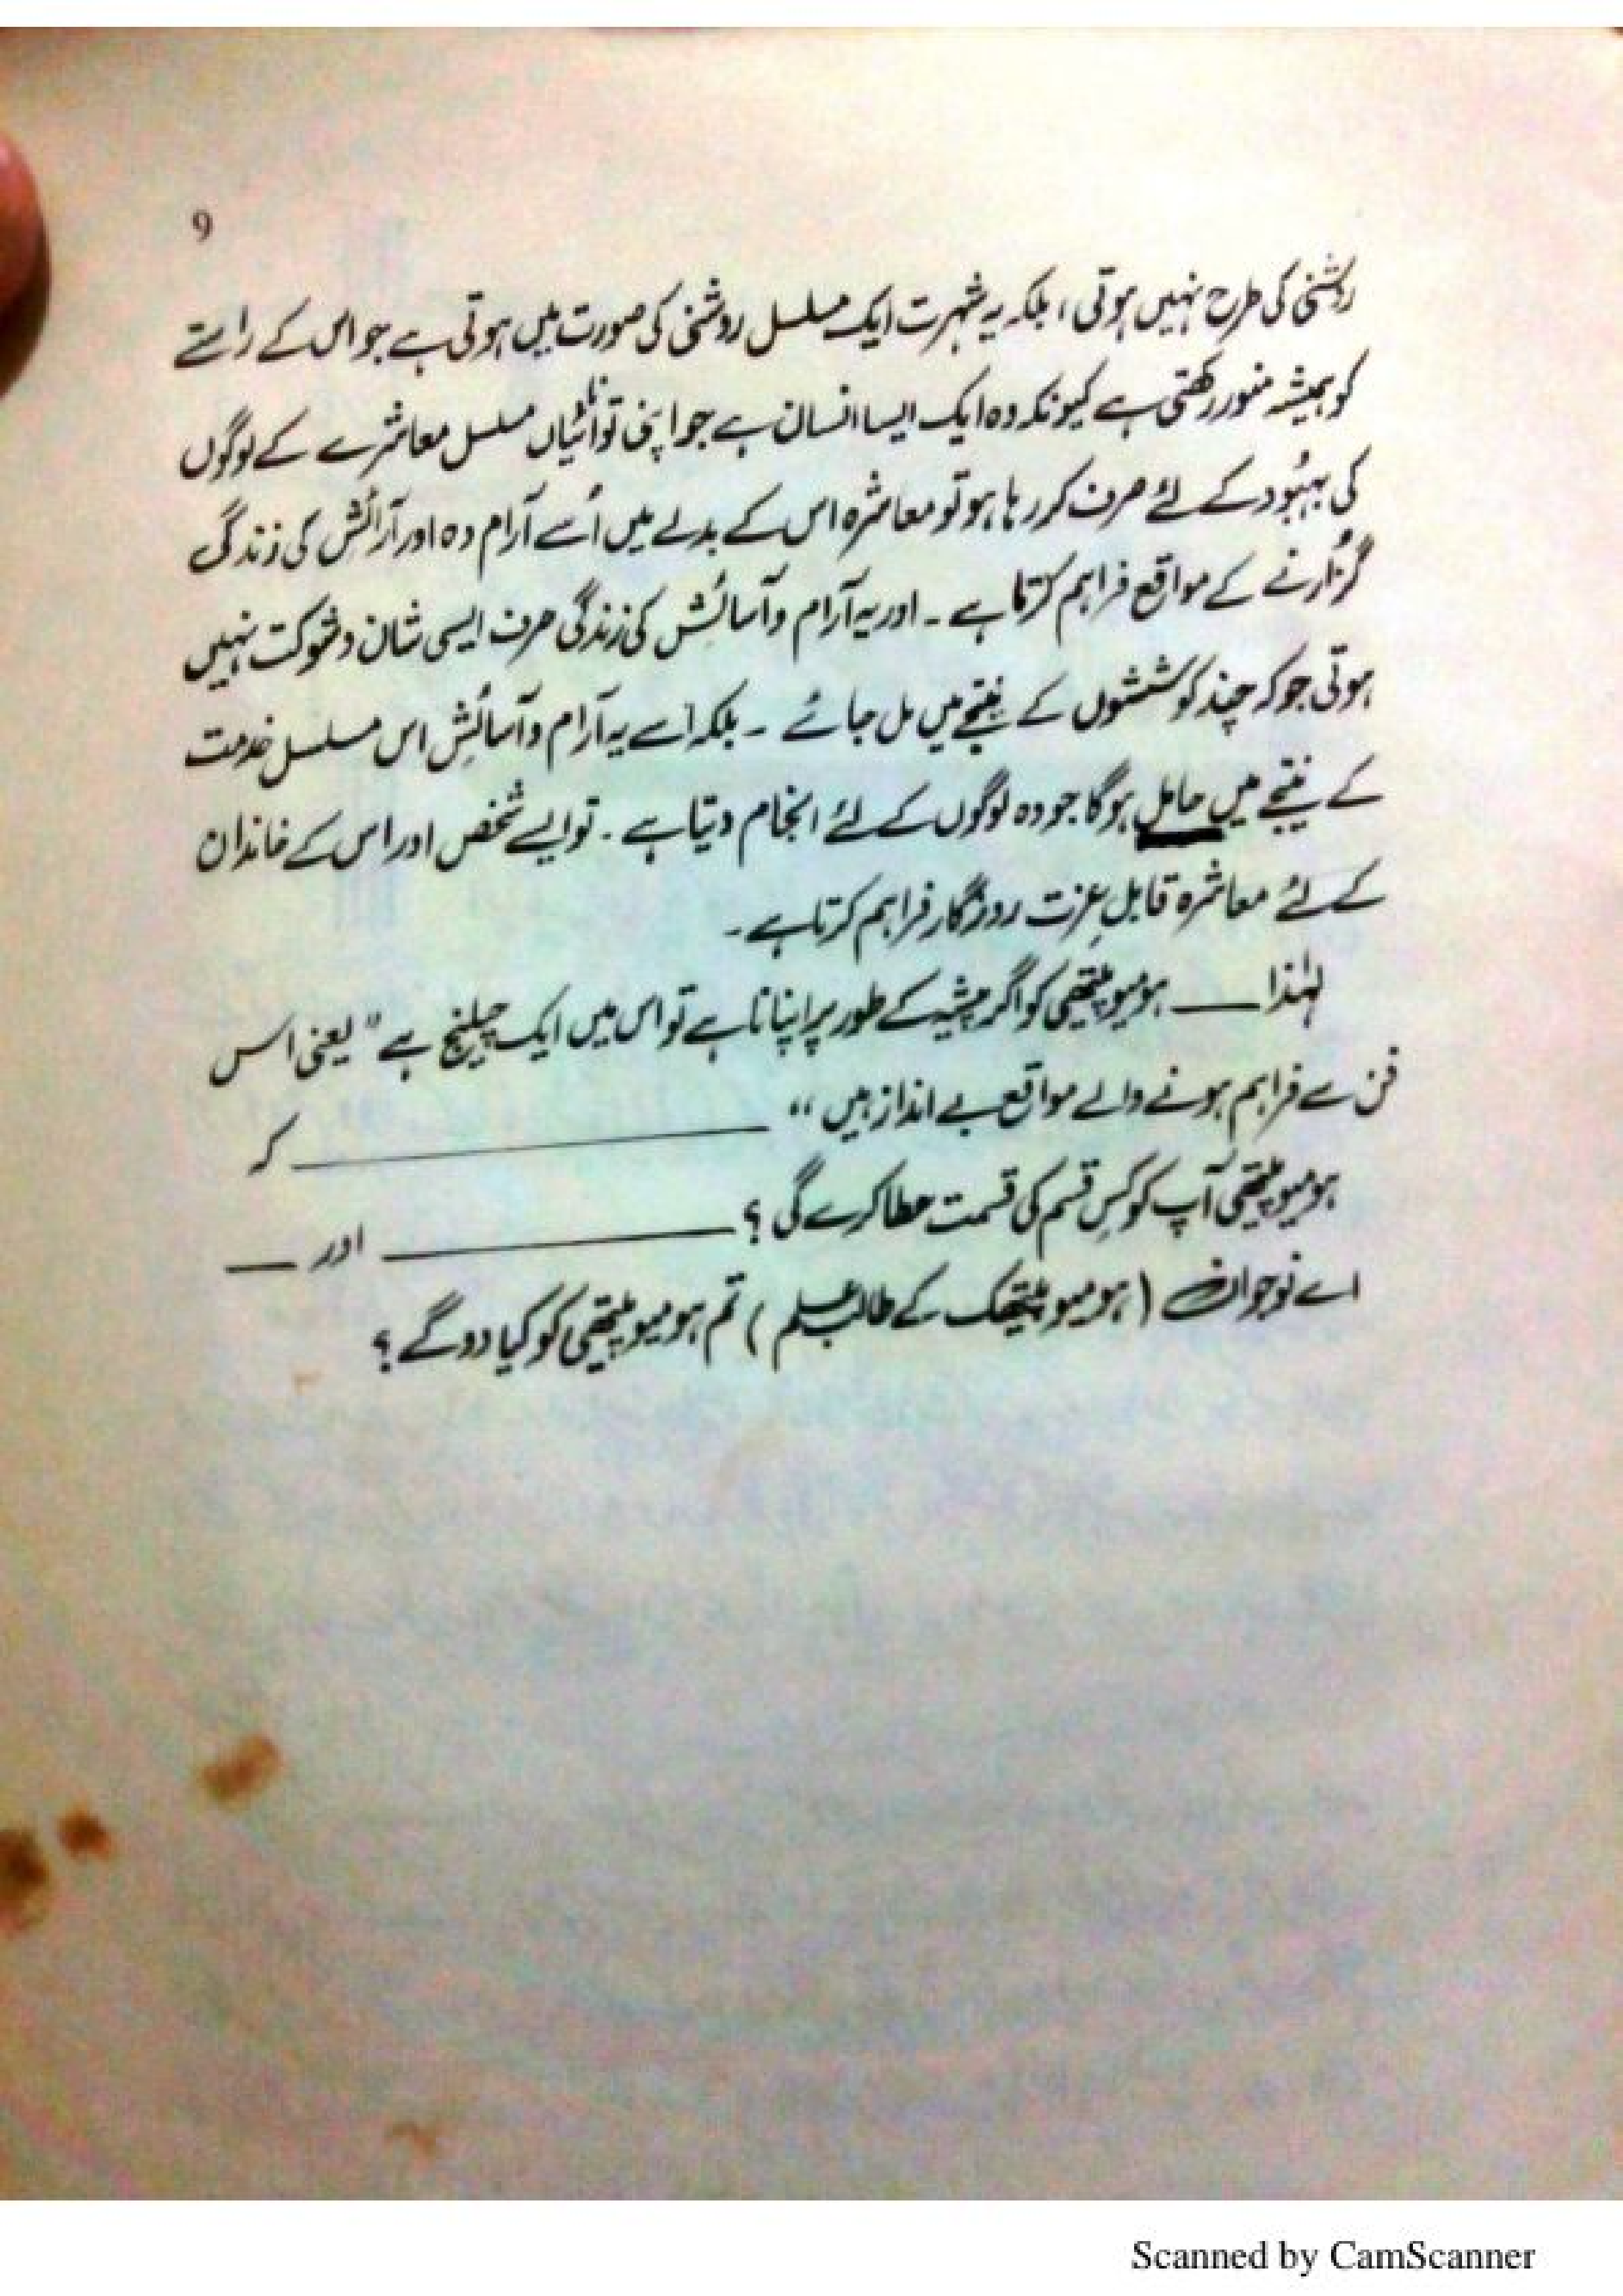 9
روشنی کی طرح نہیں ہوتی، بلکہ یہ شہرت ایک مسلسل روشنی کی صورت میں ہوتی ہے جو اس کے راستے
کو ہمیشہ منور رکھتی ہے کیونکہ وہ ایک ایسا انسان ہے جو اپنی توانائیاں مسلسل معاشرے کے لوگوں
کی بہبُود کے لئے صرف کر رہا ہو تو معاشرہ اس کے بدلے میں اُسے آرام دہ اور آرائش کی زندگی
گزارنے کے مواقع فراہم کرتا ہے ۔ اور یہ آرام و آسائش کی زندگی صرف ایسی شان و شوکت نہیں
ہوتی جو کہ چند کوششوں کے نتیجے میں مل جائے ۔ بلکہ اسے یہ آرام و آسائش اس مسلسل خدمت
کے نتیجے میں حاصل ہوگا جو وہ لوگوں کے لئے انجام دیتا ہے ۔ تو ایسے شخص اور اس کے خاندان
کے لئے معاشرہ قابلِ عزت روزگار فراہم کرتا ہے ۔
لہٰذا ___ ہومیوپیتھی کو اگر پیشہ کے طور پر اپنانا ہے تو اس میں ایک چیلنج ہے " یعنی اس
فن سے فراہم ہونے والے مواقع بے انداز ہیں " ___ کہ
ہومیوپیتھی آپ کو کس قسم کی قسمت عطا کرے گی ؟ ___ اور ___
اے نوجوان ( ہومیوپیتھک کے طالب علم ) تم ہومیوپیتھی کو کیا دو گے ؟
Scanned by CamScanner